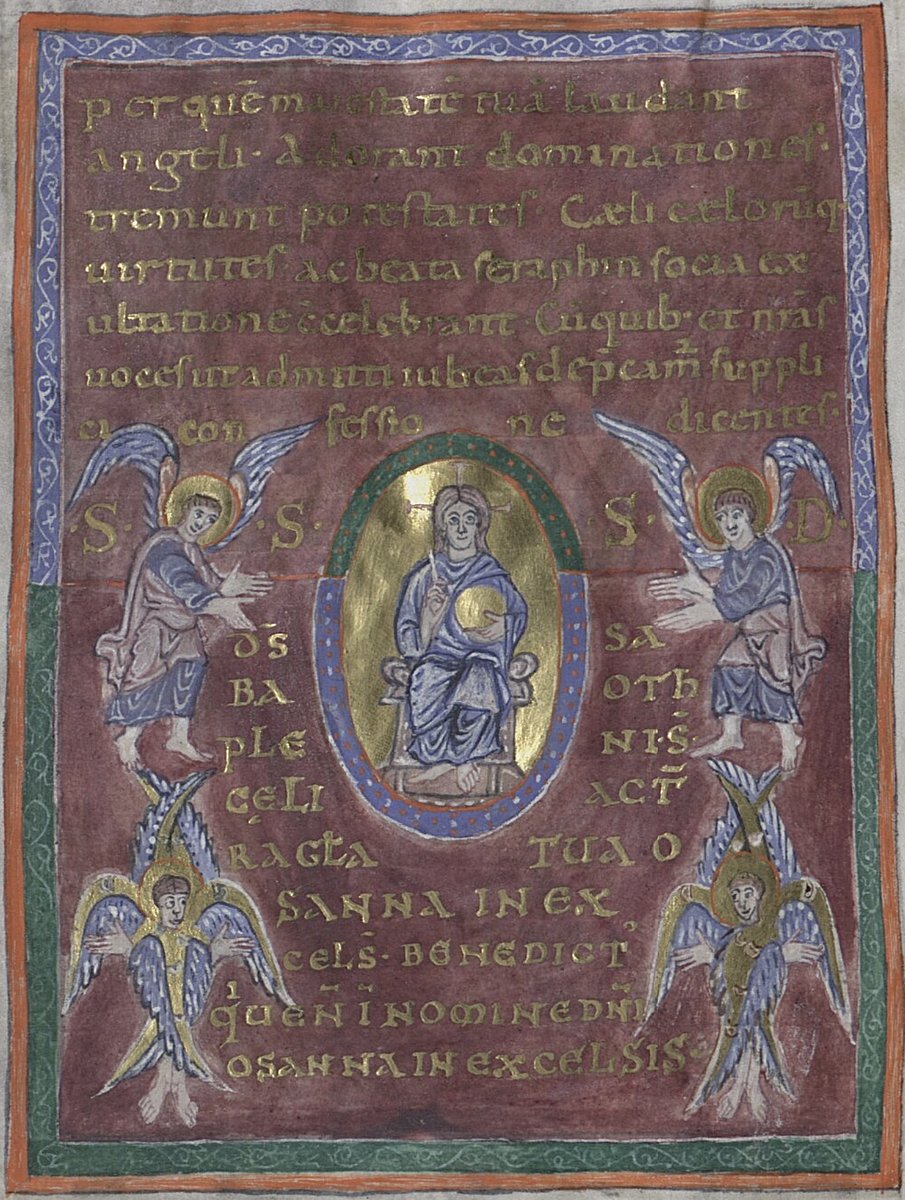 per quē maiestatē tuā laudant
angeli· Adorant dominationes·
tremunt potestates· Cæli cælorūq·
uirtutes· ac beata seraphin socia ex
ultatione c̄celebrant· Cū quib· et nr̄as
uoces ut admitti iubeas dep̄camr̄ suppli
ci con fessio ne dicentes·
S· ·S· ·S· ·D·
DS̄ SA
BA OTH
PLE NI·S̄·
CĘLI ACT̄
RAGLA TUA O
SANNA IN EX
CELS̄· BENEDICT
QUEN̄ ĪNOMINE DN̄I
OSANNA IN EXCELSIS·